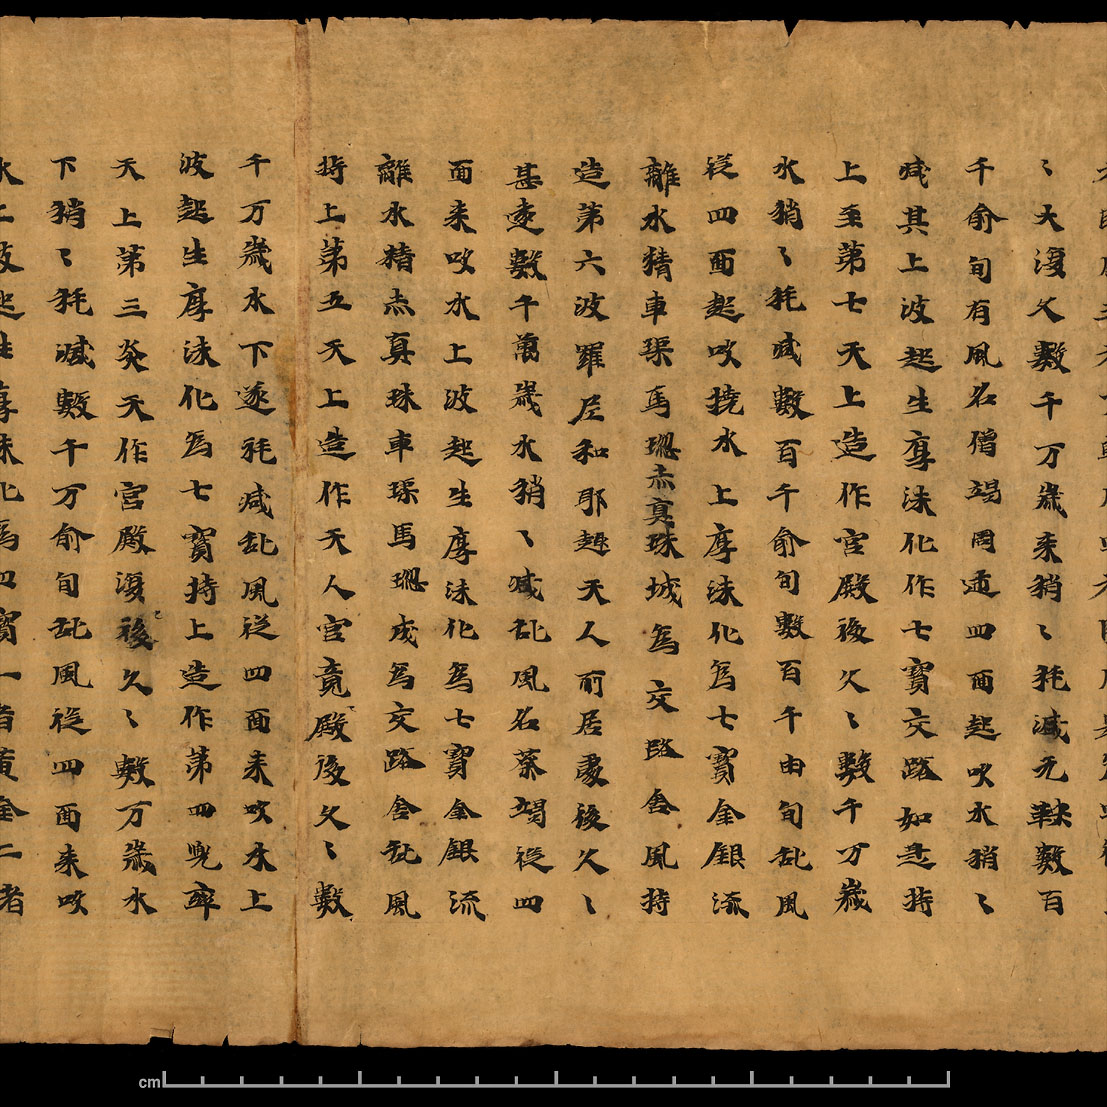 〻大復久數千万歲来稍〻秏减无鞅數百
千俞旬有風名僧竭周迊四面起吹水稍〻
减其上波起生厚沫化作七寶交路如是持
上至第七天上造作宮殿後久〻數千万歲
水稍〻秏减數百千俞旬數百千由旬乱風
従四面起吹撓水上厚沫化為七寶金銀流
離水精車璖馬瑙赤真珠城為交路舎風持
造第六波羅尼和耶越天人所居處後久〻
甚遠數千萬歲水稍〻减乱風名葉竭従四
面来吹水上波起生厚沫化為七寶金銀流
離水精赤真珠車璖馬瑙成為交路舎乱風
持上第五天上造作天人宫竟殿後久〻數
千万歲水下遂秏减乱風従四面来吹水上
波起生厚沫化為七寶持上造作第四兜率
天上第三炎天作宫殿復後久〻數万歲水
下稍〻秏减數千万俞旬乱風従四面来吹
水上波起生厚沫化為四寶一者黄金二者